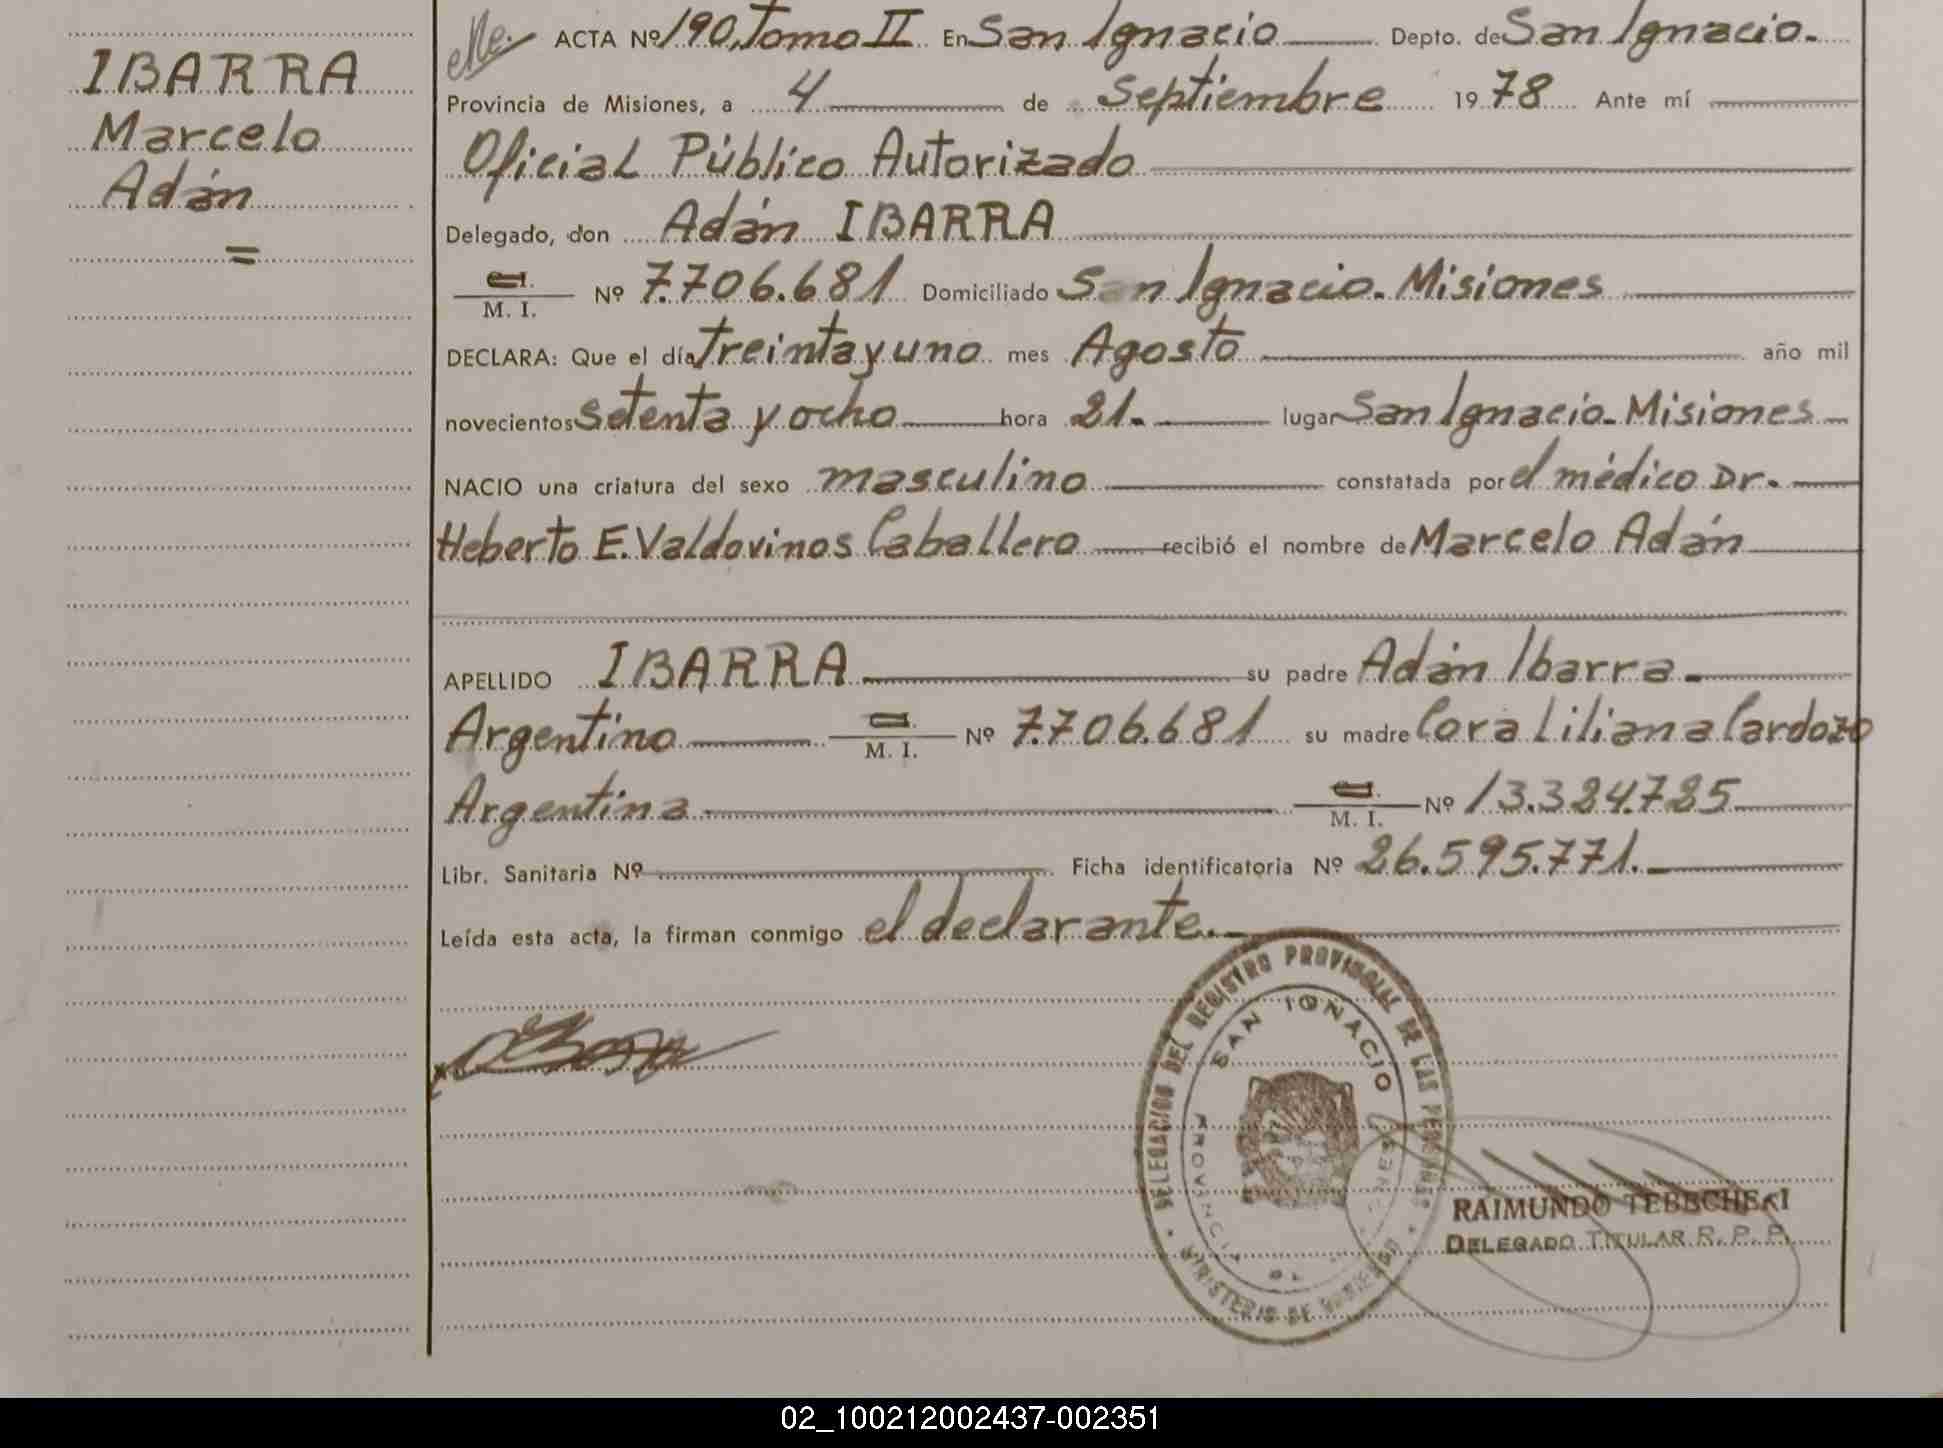 IBARRA
Marcelo
Adán
=
ACTA Nº 190, Tomo II En San Ignacio Depto. de San Ignacio.
Provincia de Misiones, a 4 de Septiembre 1978 Ante mí
Oficial Público Autorizado
Delegado, don Adán IBARRA
M. I. Nº 7.706.681 Domiciliado San Ignacio. Misiones
DECLARA: Que el día treinta y uno mes Agosto año mil
novecientos Setenta y ocho hora 21. lugar San Ignacio. Misiones
NACIO una criatura del sexo masculino constatada por el médico Dr.
Heberto E. Valdovinos Caballero recibió el nombre de Marcelo Adán
APELLIDO IBARRA su padre Adán Ibarra.
Argentino M. I. Nº 7.706.681 su madre Cora Liliana Cardozo
Argentina M. I. Nº 13.324.725
Libr. Sanitaria Nº Ficha identificatoria Nº 26.595.771.
Leída esta acta, la firman conmigo el declarante.
DELEGACION DEL REGISTRO PROVINCIAL DE LAS PERSONAS
SAN IGNACIO
PROVINCIA
MINISTERIO DE GOBIERNO
RAIMUNDO
DELEGADO TITULAR R. P. P.
02_100212002437-002351